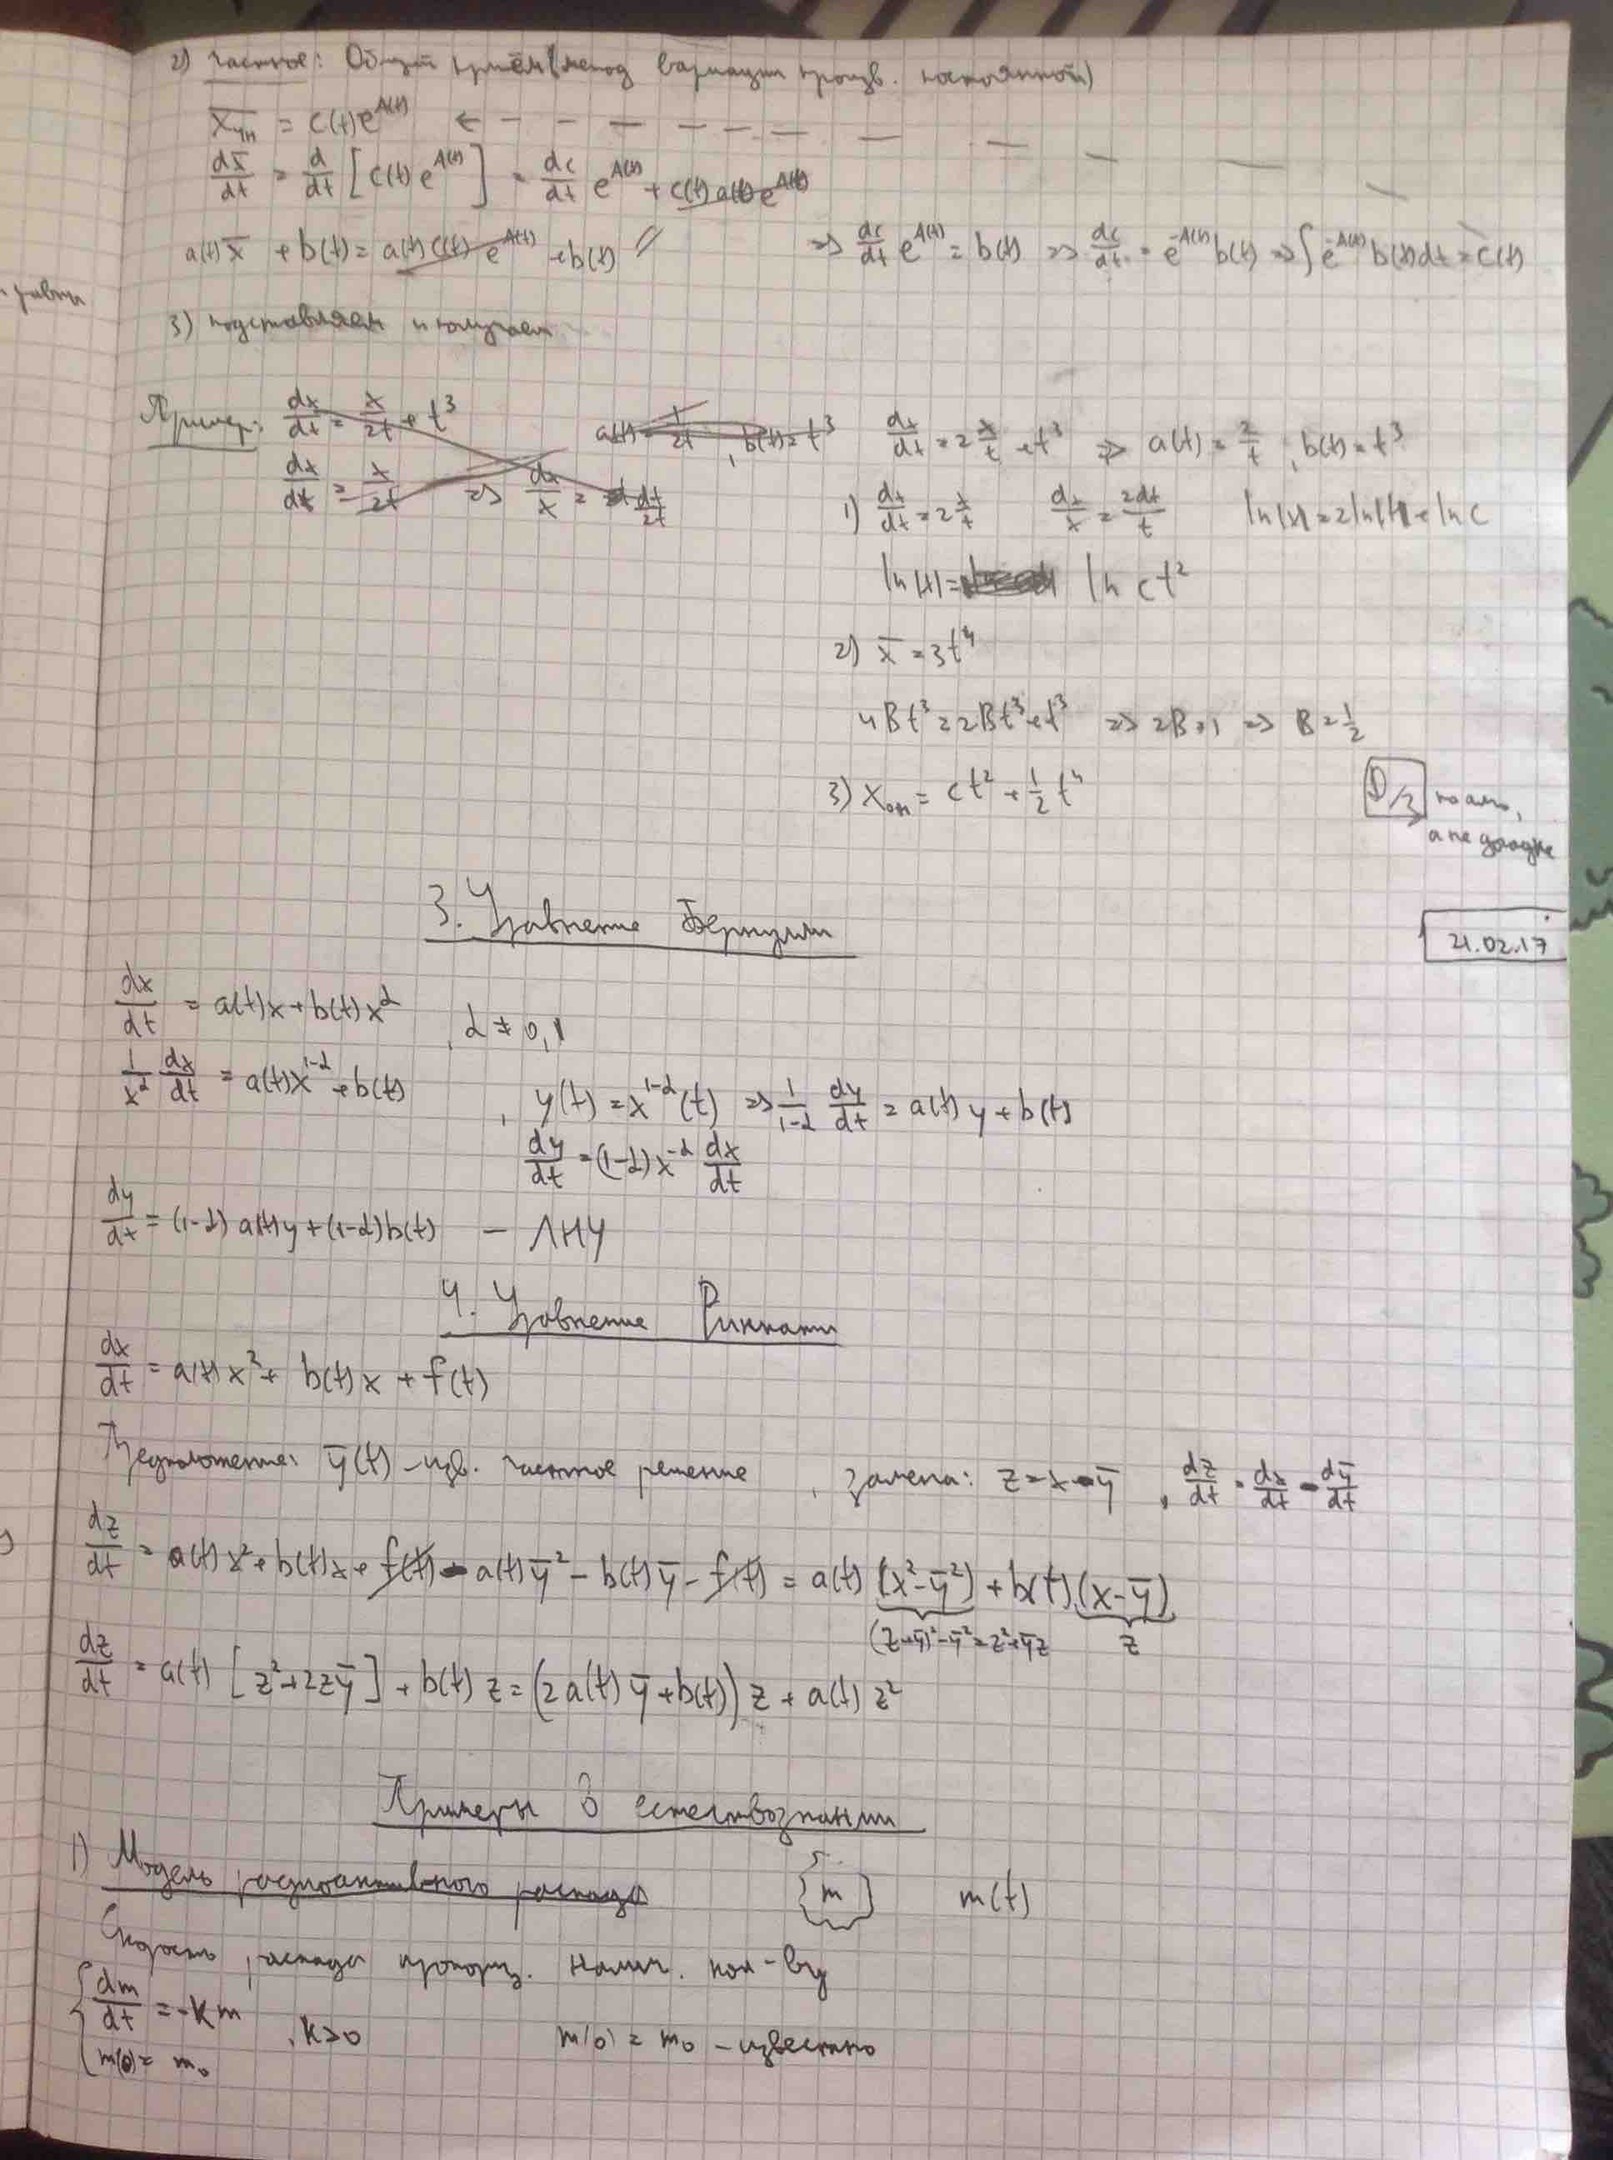 2) частное: Общий приём (метод вариации произв. постоянной)
x̅чн = c(t)e^{A(t)} ← – – – – – – – – – – –
dx̅/dt = d/dt [c(t)e^{A(t)}] = dc/dt e^{A(t)} + c(t)a(t)e^{A(t)}
a(t)x̅ + b(t) = a(t)c(t)e^{A(t)} + b(t) // => dc/dt e^{A(t)} = b(t) => dc/dt = e^{-A(t)} b(t) => ∫e^{-A(t)} b(t)dt = c(t)
3) подставляем и получаем
Пример: dx/dt = x/2t + t³ a(t) = 1/2t, b(t) = t³ dx/dt = 2 x/t + t³ => a(t) = 2/t, b(t) = t³
dx/dt = x/2t => dx/x = dt/2t 1) dx/dt = 2 x/t dx/x = 2dt/t ln|x| = 2ln|t| + ln c
ln|x| = ln ct²
2) x̅ = Bt⁴
4Bt³ = 2Bt³ + t³ => 2B = 1 => B = 1/2
3) xон = ct² + 1/2 t⁴ D/з
21.02.17
3. Уравнение Бернулли
dx/dt = a(t)x + b(t)x^α, α ≠ 0,1
1/x^α dx/dt = a(t)x^{1-α} + b(t), y(t) = x^{1-α}(t) => 1/(1-α) dy/dt = a(t)y + b(t)
dy/dt = (1-α)x^{-α} dx/dt
dy/dt = (1-α)a(t)y + (1-α)b(t) – ЛНУ
4. Уравнение Риккати
dx/dt = a(t)x² + b(t)x + f(t)
Предположение: y̅(t) – изв. частное решение, Замена: z = x - y̅, dz/dt = dx/dt - dy̅/dt
dz/dt = a(t)x² + b(t)x + f(t) - a(t)y̅² - b(t)y̅ - f(t) = a(t)(x² - y̅²) + b(t)(x - y̅)
(z+y̅)² - y̅² = z² + y̅z z
dz/dt = a(t)[z² + 2zy̅] + b(t)z = (2a(t)y̅ + b(t))z + a(t)z²
Примеры в естествознании
1) Модель радиоактивного распада m m(t)
Скорость распада пропорц. налич. кол-ву
dm/dt = -km, k>0 m(0) = m₀ – известно
m(0) = m₀